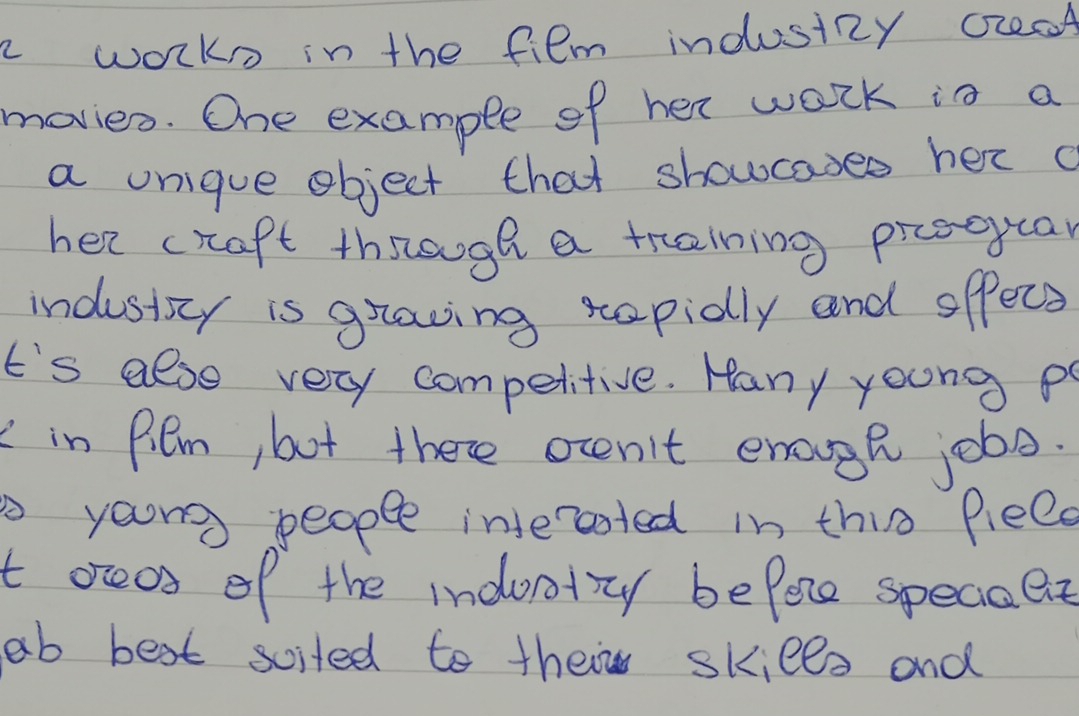 works in the film industry creat
movies. One example of her work is a
a unique object that showcases her c
her craft through a training program
industry is growing rapidly and offers
t's also very competitive. Many young pe
in film, but there aren't enough jobs.
s young people interested in this field
t areas of the industry before specializ
job best suited to their skills and